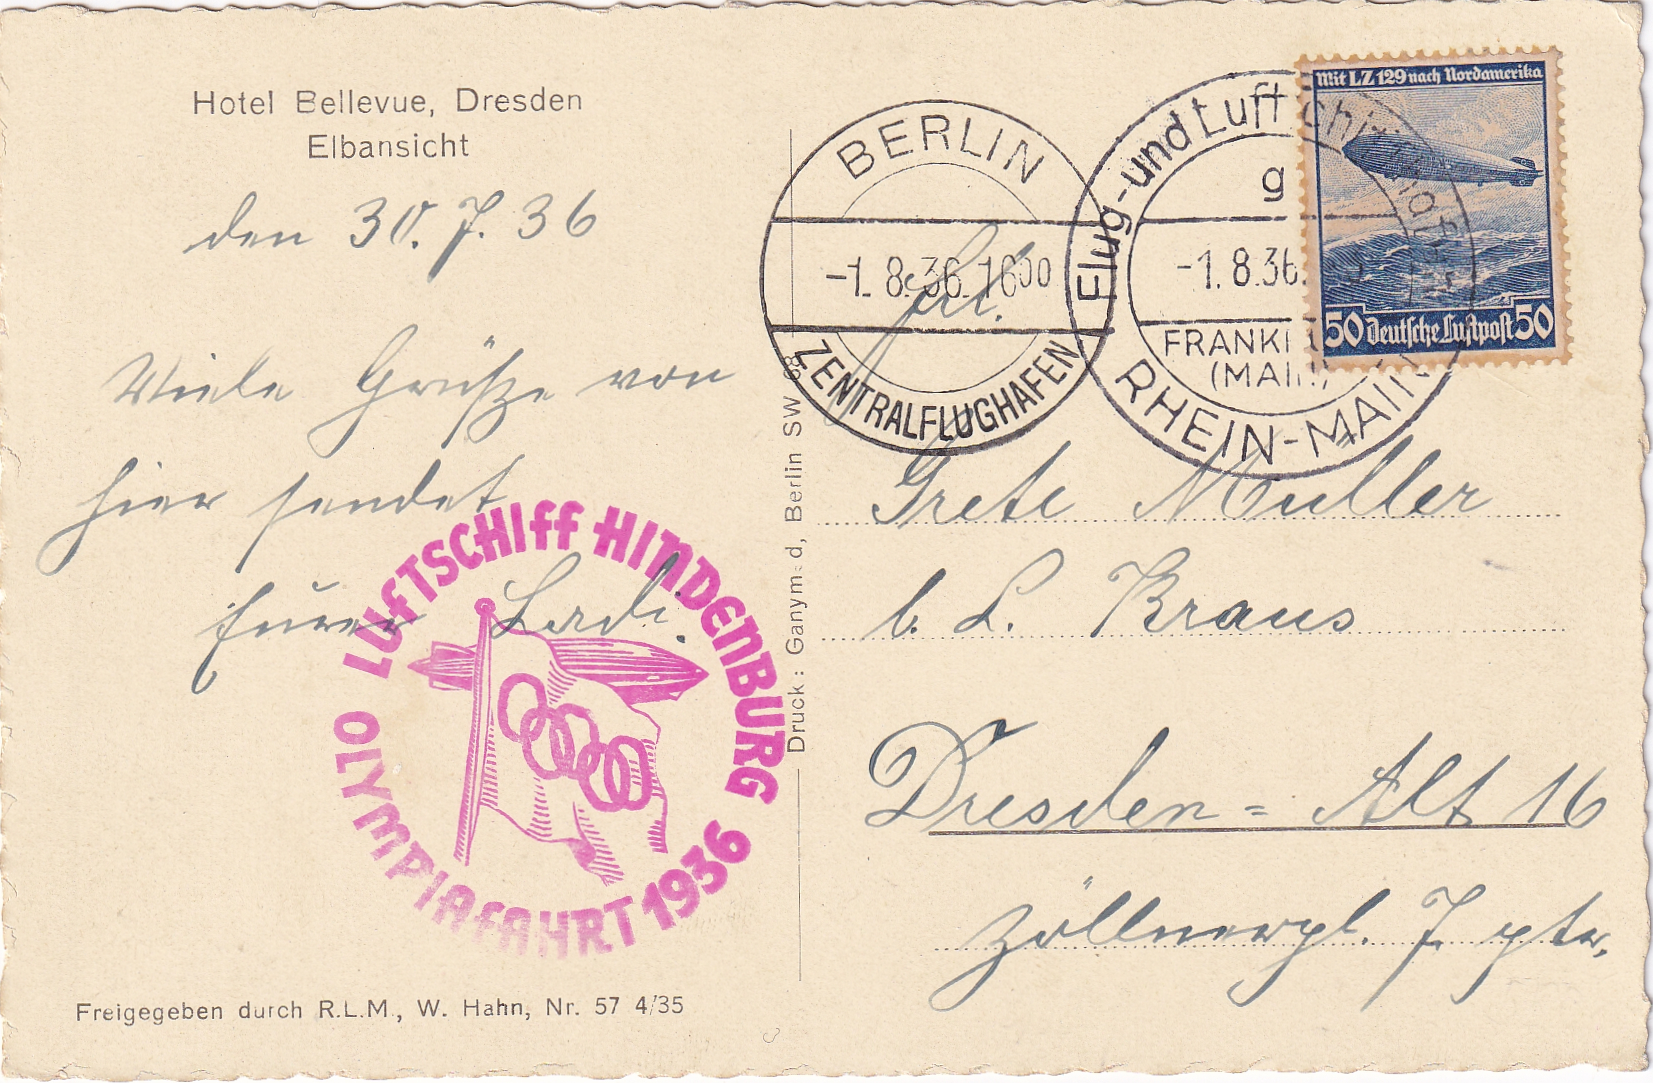 Hotel Bellevue, Dresden
Elbansicht
den 30. 7. 36
Viele Grüße von
hier sendet
Eurer Ladi.
LUFTSCHIFF HINDENBURG
OLYMPIAFAHRT 1936
Freigegeben durch R.L.M., W. Hahn, Nr. 57 4/35
Druck: Ganymed, Berlin SW 68
BERLIN
-1. 8. 36. 16 00
ZENTRALFLUGHAFEN
Flug- und Luftschiffhafen
g
-1. 8. 36.
FRANKF
(MAIN)
RHEIN-MAIN
Mit LZ 129 nach Nordamerika
50 Deutsche Luftpost 50
Frl.
Grete Müller
b. L. Kraus
Dresden = Alt 16
Zöllnerpl. 7 ptr.